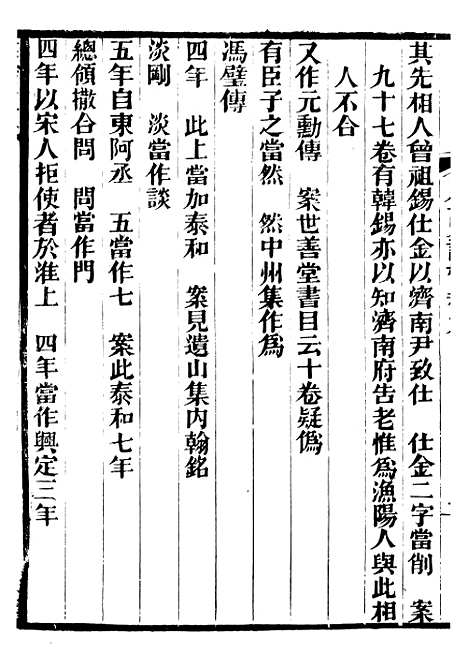 其先相人曾祖錫仕金以濟南尹致仕　仕金二字當削　案
九十七卷有韓錫亦以知濟南府告老惟為漁陽人與此相
人不合
又作元勳傳　案世善堂書目云十卷疑偽
有臣子之當然　然中州集作為
馮璧傳
四年　此上當加泰和　案見遺山集內翰銘
淡剛　淡當作談
五年自東阿丞　五當作七　案此泰和七年
總領撒合問　問當作門
四年以宋人拒使者於淮上　四年當作興定三年